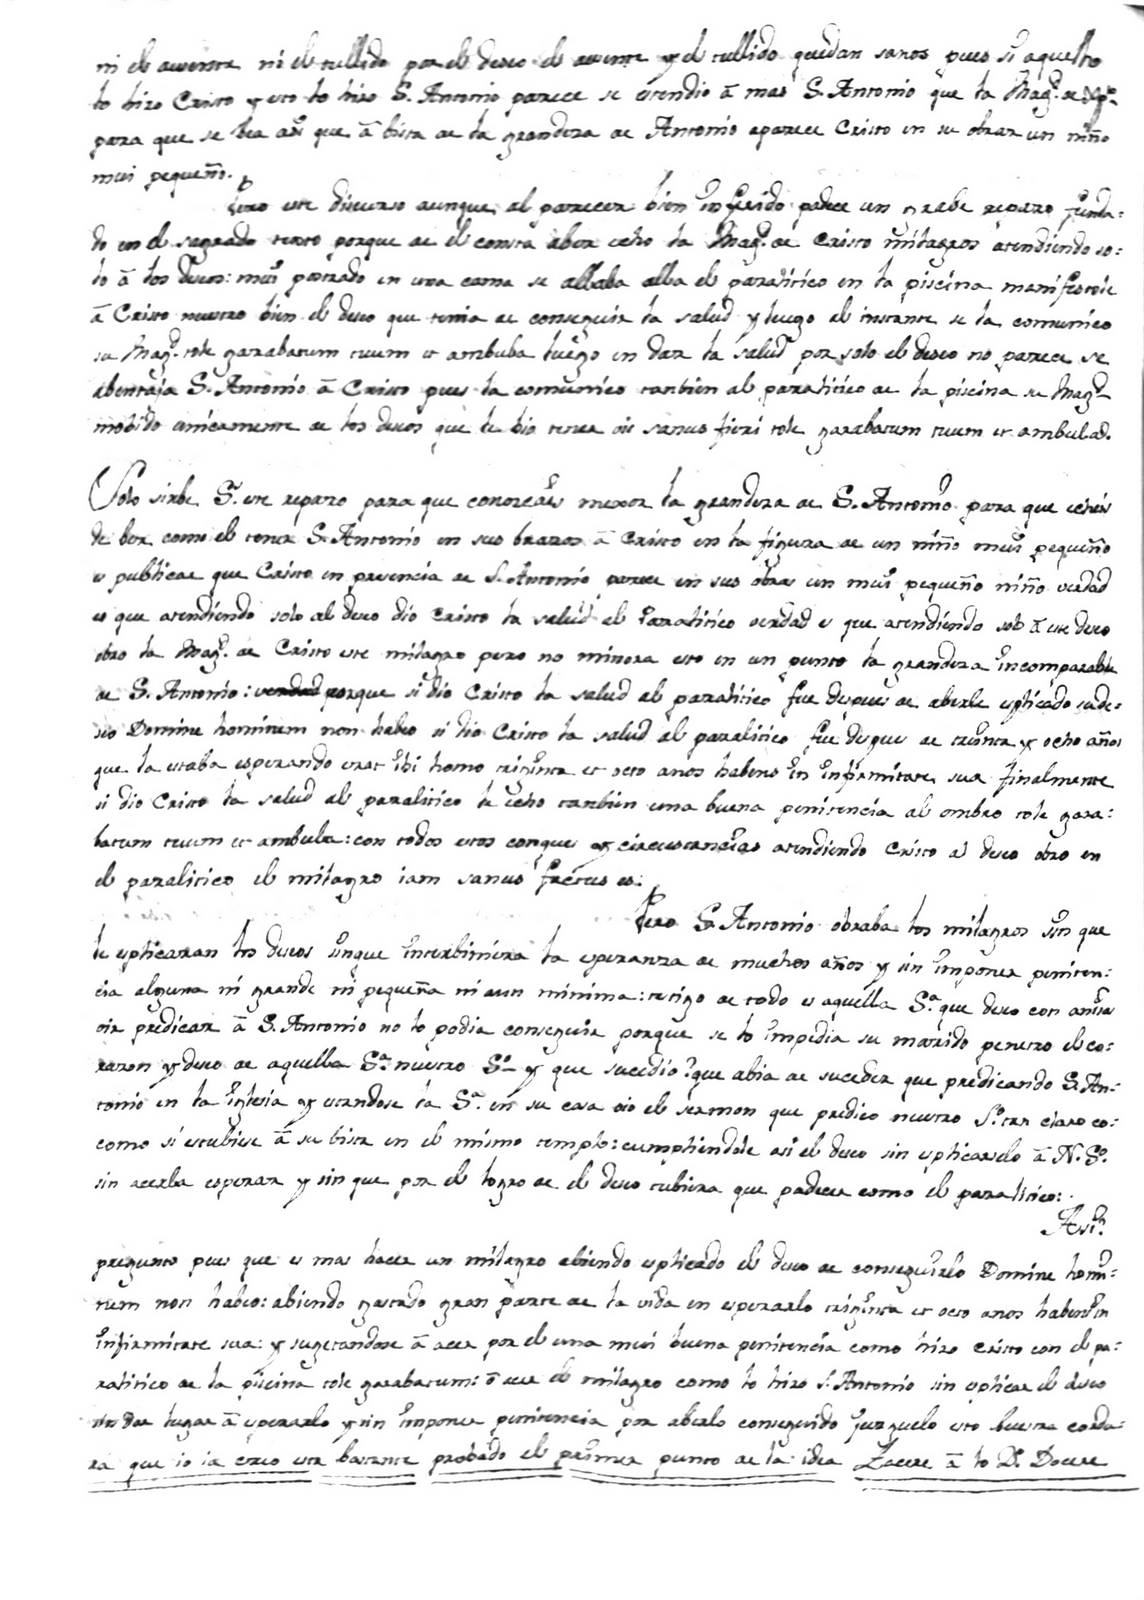 ni el ausente ni el tullido por el deseo el ausente y el tullido quedan sanos pues si aquello
lo hizo Cristo y esto lo hizo S. Antonio parece se estendio â mas S. Antonio que la Magd. de Xpto
para que se bea asi que â bista de la grandeza de Antonio aparece Cristo en su obrar un niño
mui pequeño.
Pero este discurso aunque al parecer bien inferido padece un grabe reparo funda-
do en el sagrado texto porque de el consta aber echo la Magd. de Cristo milagros atendiendo so-
lo â los deseos: mui postrado en una cama se allaba alla el paralitico en la piscina manifestole
â Cristo nuestro bien el deseo que tenia de conseguir la salud y luego al instante se la comunico
su Magd. tole garabatum tuum et ambula luego en dar la salud por solo el deseo no parece se
abentaja S. Antonio â Cristo pues la comunico tanbien al paralitico de la piscina su Magd.
mobido unicamente de los deseos que le bio tener vis sanus fieri tole garabatum tuum et ambulad.
Solo sirbe Sr. este reparo para que conozcais mexor la grandeza de S. Antonio para que echeis
de ber como el tener S. Antonio en sus brazos â Cristo en la figura de un niño mui pequeño
es publicar que Cristo en presencia de S. Antonio parece en sus obras un mui pequeño niño verdad
es que atendiendo solo al deseo dio Cristo la salud al Paralitico verdad es que atendiendo solo â este deseo
obro la Magd. de Cristo este milagro pero no minora esto en un punto la grandeza incomparable
de S. Antonio: porque si dio Cristo la salud al paralitico fue despues de aberle esplicado su de-
seo Domine hominem non habeo si dio Cristo la salud al paralitico fue despues de treinta y ocho años
que la estaba esperando erat ibi homo triginta et octo anos habens in infirmitate sua finalmente
si dio Cristo la salud al paralitico le echo tanbien una buena penitencia al ombro tole gara-
batum tuum et ambula: con todos estos conques y circustancias atendiendo Cristo al deseo obro en
el paralitico el milagro iam sanus factus es.
Pero S. Antonio obraba los milagros sin que
le esplicaran los deseos sinque interbiniera la esperanza de muchos años y sin imponer peniten-
cia alguna ni grande ni pequeña ni aun minima: testigo de todo es aquella Sa. que deseo con ansias
oir predicar â S. Antonio no lo podia conseguir porque se lo impedia su marido penetro el co-
razon y deseo de aquella Sa. nuestro Sto. y que sucedio? que abia de suceder que predicando S. An-
tonio en la iglesia y estandose la Sa. en su casa oio el sermon que predico nuestro Sto. tan claro co-
como si estubiese â su bista en el mismo templo: cumpliendole asi el deseo sin esplicarselo â N. Sto.
sin acerla esperar y sin que por el logro de el deseo tubiera que padecer como el paralitico:
Asi
pregunto pues que es mas hacer un milagro abiendo esplicado el deseo de conseguirlo Domine homi-
nem non habeo: abiendo gastado gran parte de la vida en esperarlo triginta et octo anos habens in
infirmitate sua: y sugetandose â acer por el una mui buena penitencia como hizo Cristo con el pa-
ralitico de la piscina tole garabatum: ô acer el milagro como lo hizo S. Antonio sin esplicar el deseo
sin dar lugar â esperarlo y sin imponer penitencia por aberlo conseguido juzguelo esto buestra cordu-
ra que io ia creo esta bastante probado el primer punto de la idea Facere â lo D. Docere